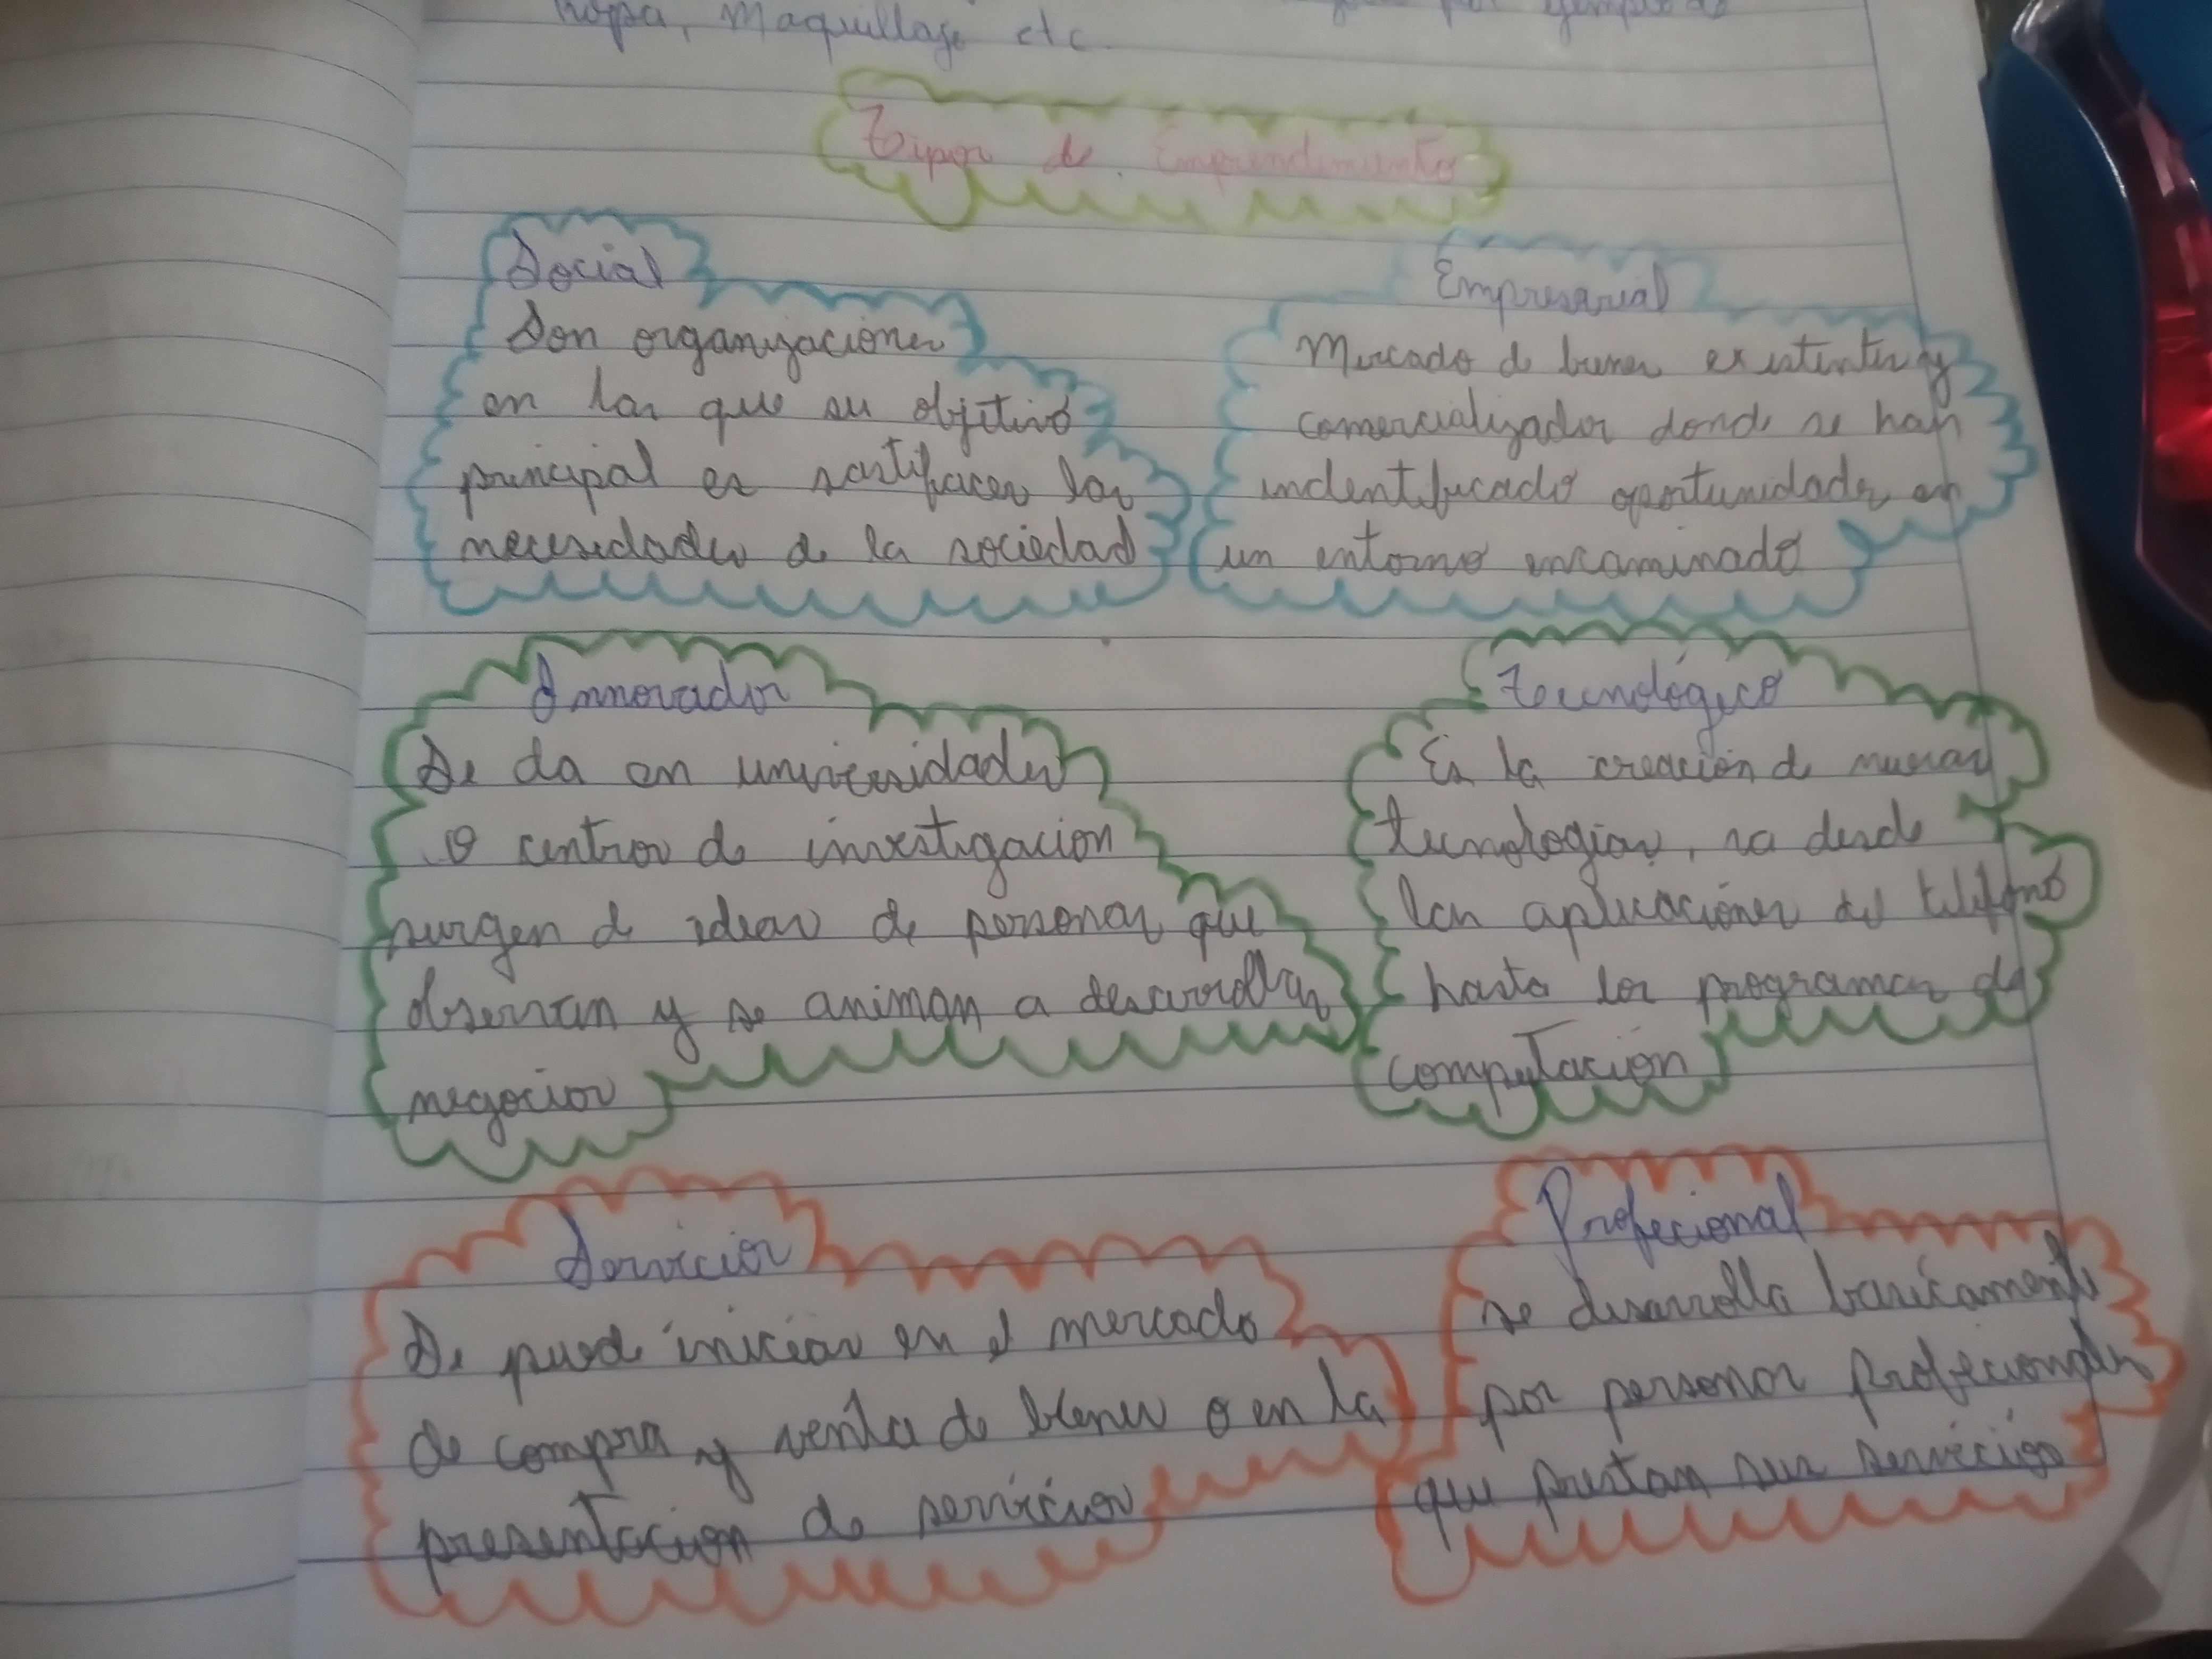 ropa, maquillaje etc.
Tipos de Emprendimientos
Social
Son organizaciones
en las que su objetivo
principal es sastifacer las
necesidades de la sociedad
Empresarial
Mercado de bienes existentes y
comercializador donde se han
indentificado oportunidades en
un entorno encaminado
Innovador
Se da en universidades
o centros de investigacion
surgen de ideas de personas que
observan y se animan a desarrollar
negocios
Tecnológico
Es la creación de nuevas
tecnologías, va desde
las aplicaciones del telefono
hasta los programas de
computación
Servicios
Se puede iniciar en el mercado
de compra y venta de bienes o en la
presentacion de servicios
Profecional
se desarrolla basicamente
por personas profecionales
que prestan sus servicios